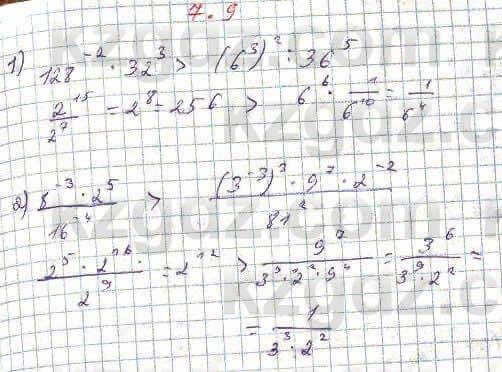 7.9
1) 128^-2 · 32^3 > (6^3)^2 : 36^5
2^15/2^7 = 2^8 = 256 > 6^6 · 1/6^10 = 1/6^4
2) 8^-3 · 2^5 / 16^-4 > (3^-3)^3 · 9^7 · 2^-2 / 81^2
2^5 · 2^16 / 2^9 = 2^12 > 9^7 / 3^9 · 2^2 · 9^4 = 3^6 / 3^9 · 2^2 =
= 1 / 3^3 · 2^2